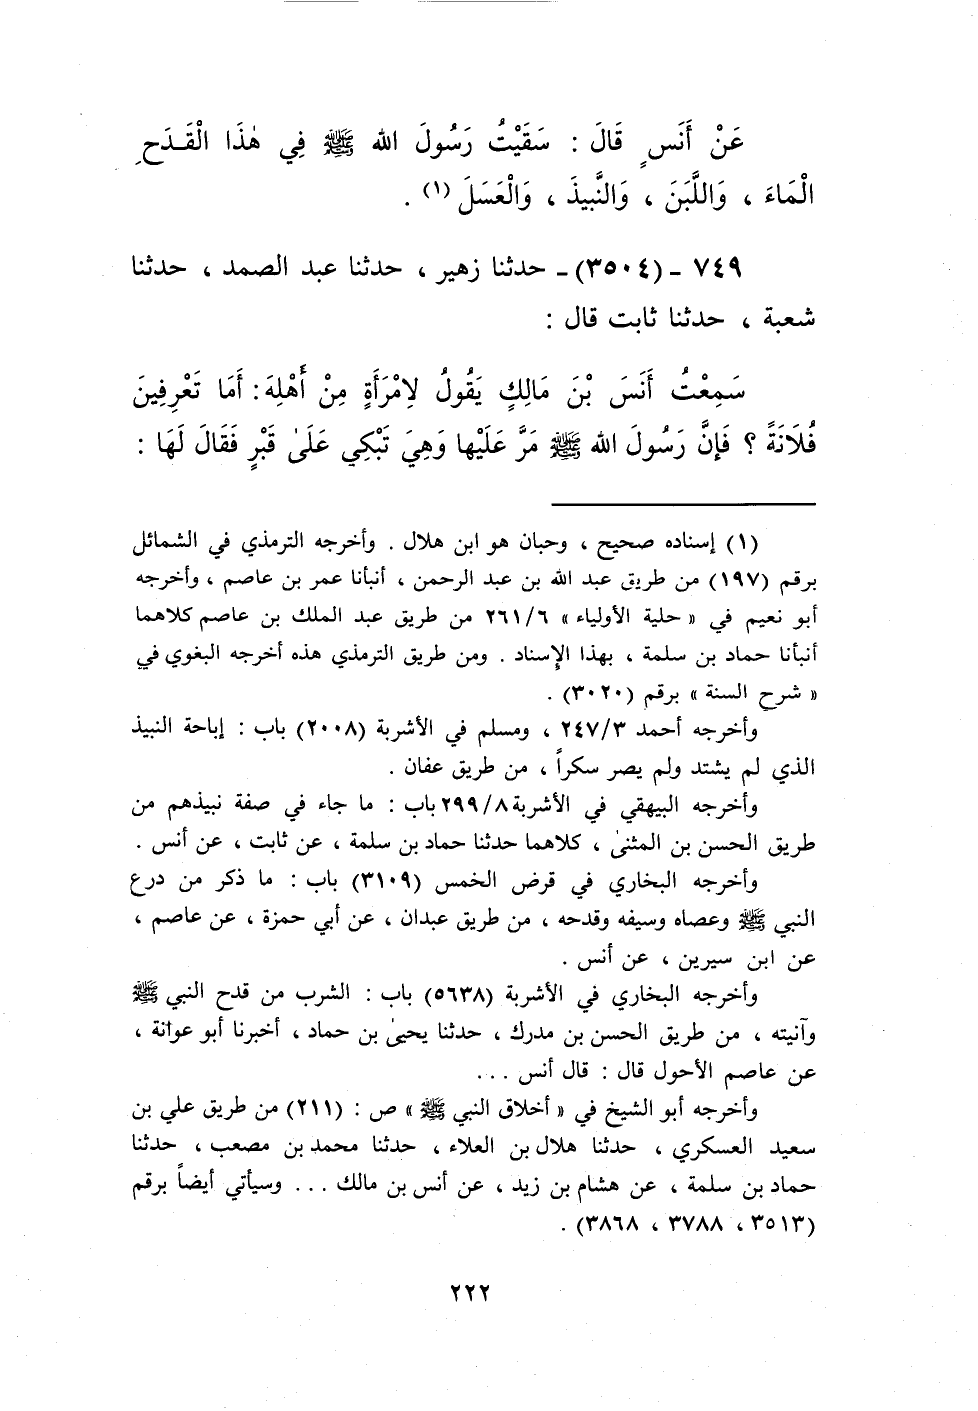 عَنْ أَنَسٍ قَالَ : سَقَيْتُ رَسُولَ الله ﷺ فِي هٰذَا الْقَـدَحِ
الْمَاءَ ، وَاللَّبَنَ ، وَالنَّبِيذَ ، وَالْعَسَلَ (١) .
٧٤٩ - (٣٥٠٤) - حدثنا زهير ، حدثنا عبد الصمد ، حدثنا
شعبة ، حدثنا ثابت قال :
سَمِعْتُ أَنَسَ بْنَ مَالِكٍ يَقُولُ لِامْرَأَةٍ مِنْ أَهْلِهَ : أَمَا تَعْرِفِينَ
فُلَانَةً ؟ فَإِنَّ رَسُولَ الله ﷺ مَرَّ عَلَيْها وَهِيَ تَبْكِي عَلَىٰ قَبْرٍ فَقَالَ لَهَا :
(١) إسناده صحيح ، وحبان هو ابن هلال . وأخرجه الترمذي في الشمائل
برقم (١٩٧) من طريق عبد الله بن عبد الرحمن ، أنبأنا عمر بن عاصم ، وأخرجه
أبو نعيم في « حلية الأولياء » ٢٦١/٦ من طريق عبد الملك بن عاصم كلاهما
أنبأنا حماد بن سلمة ، بهذا الإسناد . ومن طريق الترمذي هذه أخرجه البغوي في
« شرح السنة » برقم (٣٠٢٠) .
وأخرجه أحمد ٢٤٧/٣ ، ومسلم في الأشربة (٢٠٠٨) باب : إباحة النبيذ
الذي لم يشتد ولم يصر سكراً ، من طريق عفان .
وأخرجه البيهقي في الأشربة ٢٩٩/٨ باب : ما جاء في صفة نبيذهم من
طريق الحسن بن المثنىٰ ، كلاهما حدثنا حماد بن سلمة ، عن ثابت ، عن أنس .
وأخرجه البخاري في قرض الخمس (٣١٠٩) باب : ما ذكر من درع
النبي ﷺ وعصاه وسيفه وقدحه ، من طريق عبدان ، عن أبي حمزة ، عن عاصم ،
عن ابن سيرين ، عن أنس .
وأخرجه البخاري في الأشربة (٥٦٣٨) باب : الشرب من قدح النبي ﷺ
وآنيته ، من طريق الحسن بن مدرك ، حدثنا يحيىٰ بن حماد ، أخبرنا أبو عوانة ،
عن عاصم الأحول قال : قال أنس ...
وأخرجه أبو الشيخ في « أخلاق النبي ﷺ » ص : (٢١١) من طريق علي بن
سعيد العسكري ، حدثنا هلال بن العلاء ، حدثنا محمد بن مصعب ، حدثنا
حماد بن سلمة ، عن هشام بن زيد ، عن أنس بن مالك ... وسيأتي أيضاً برقم
(٣٥١٣ ، ٣٧٨٨ ، ٣٨٦٨) .
٢٢٢